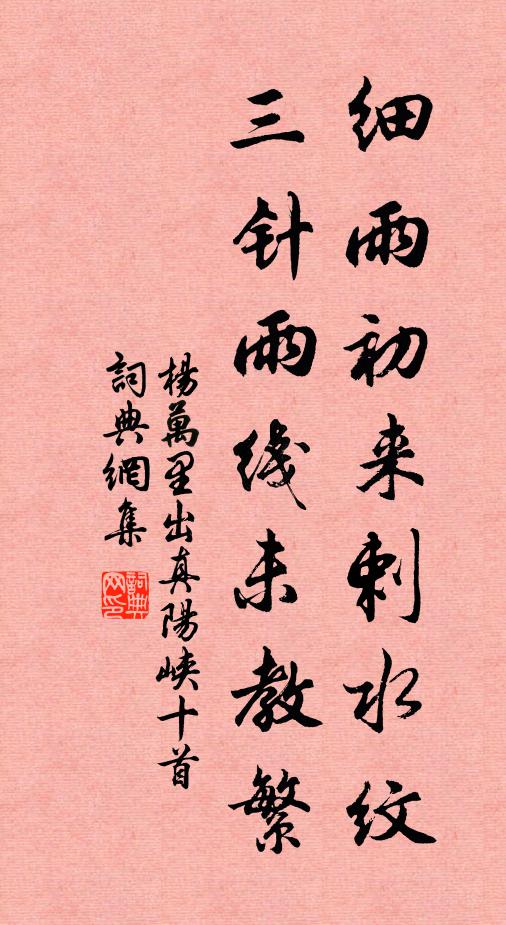 细雨初来刺水纹
三针雨线未教繁
楊萬里出真陽峽十首
詞典網集
詞典网印